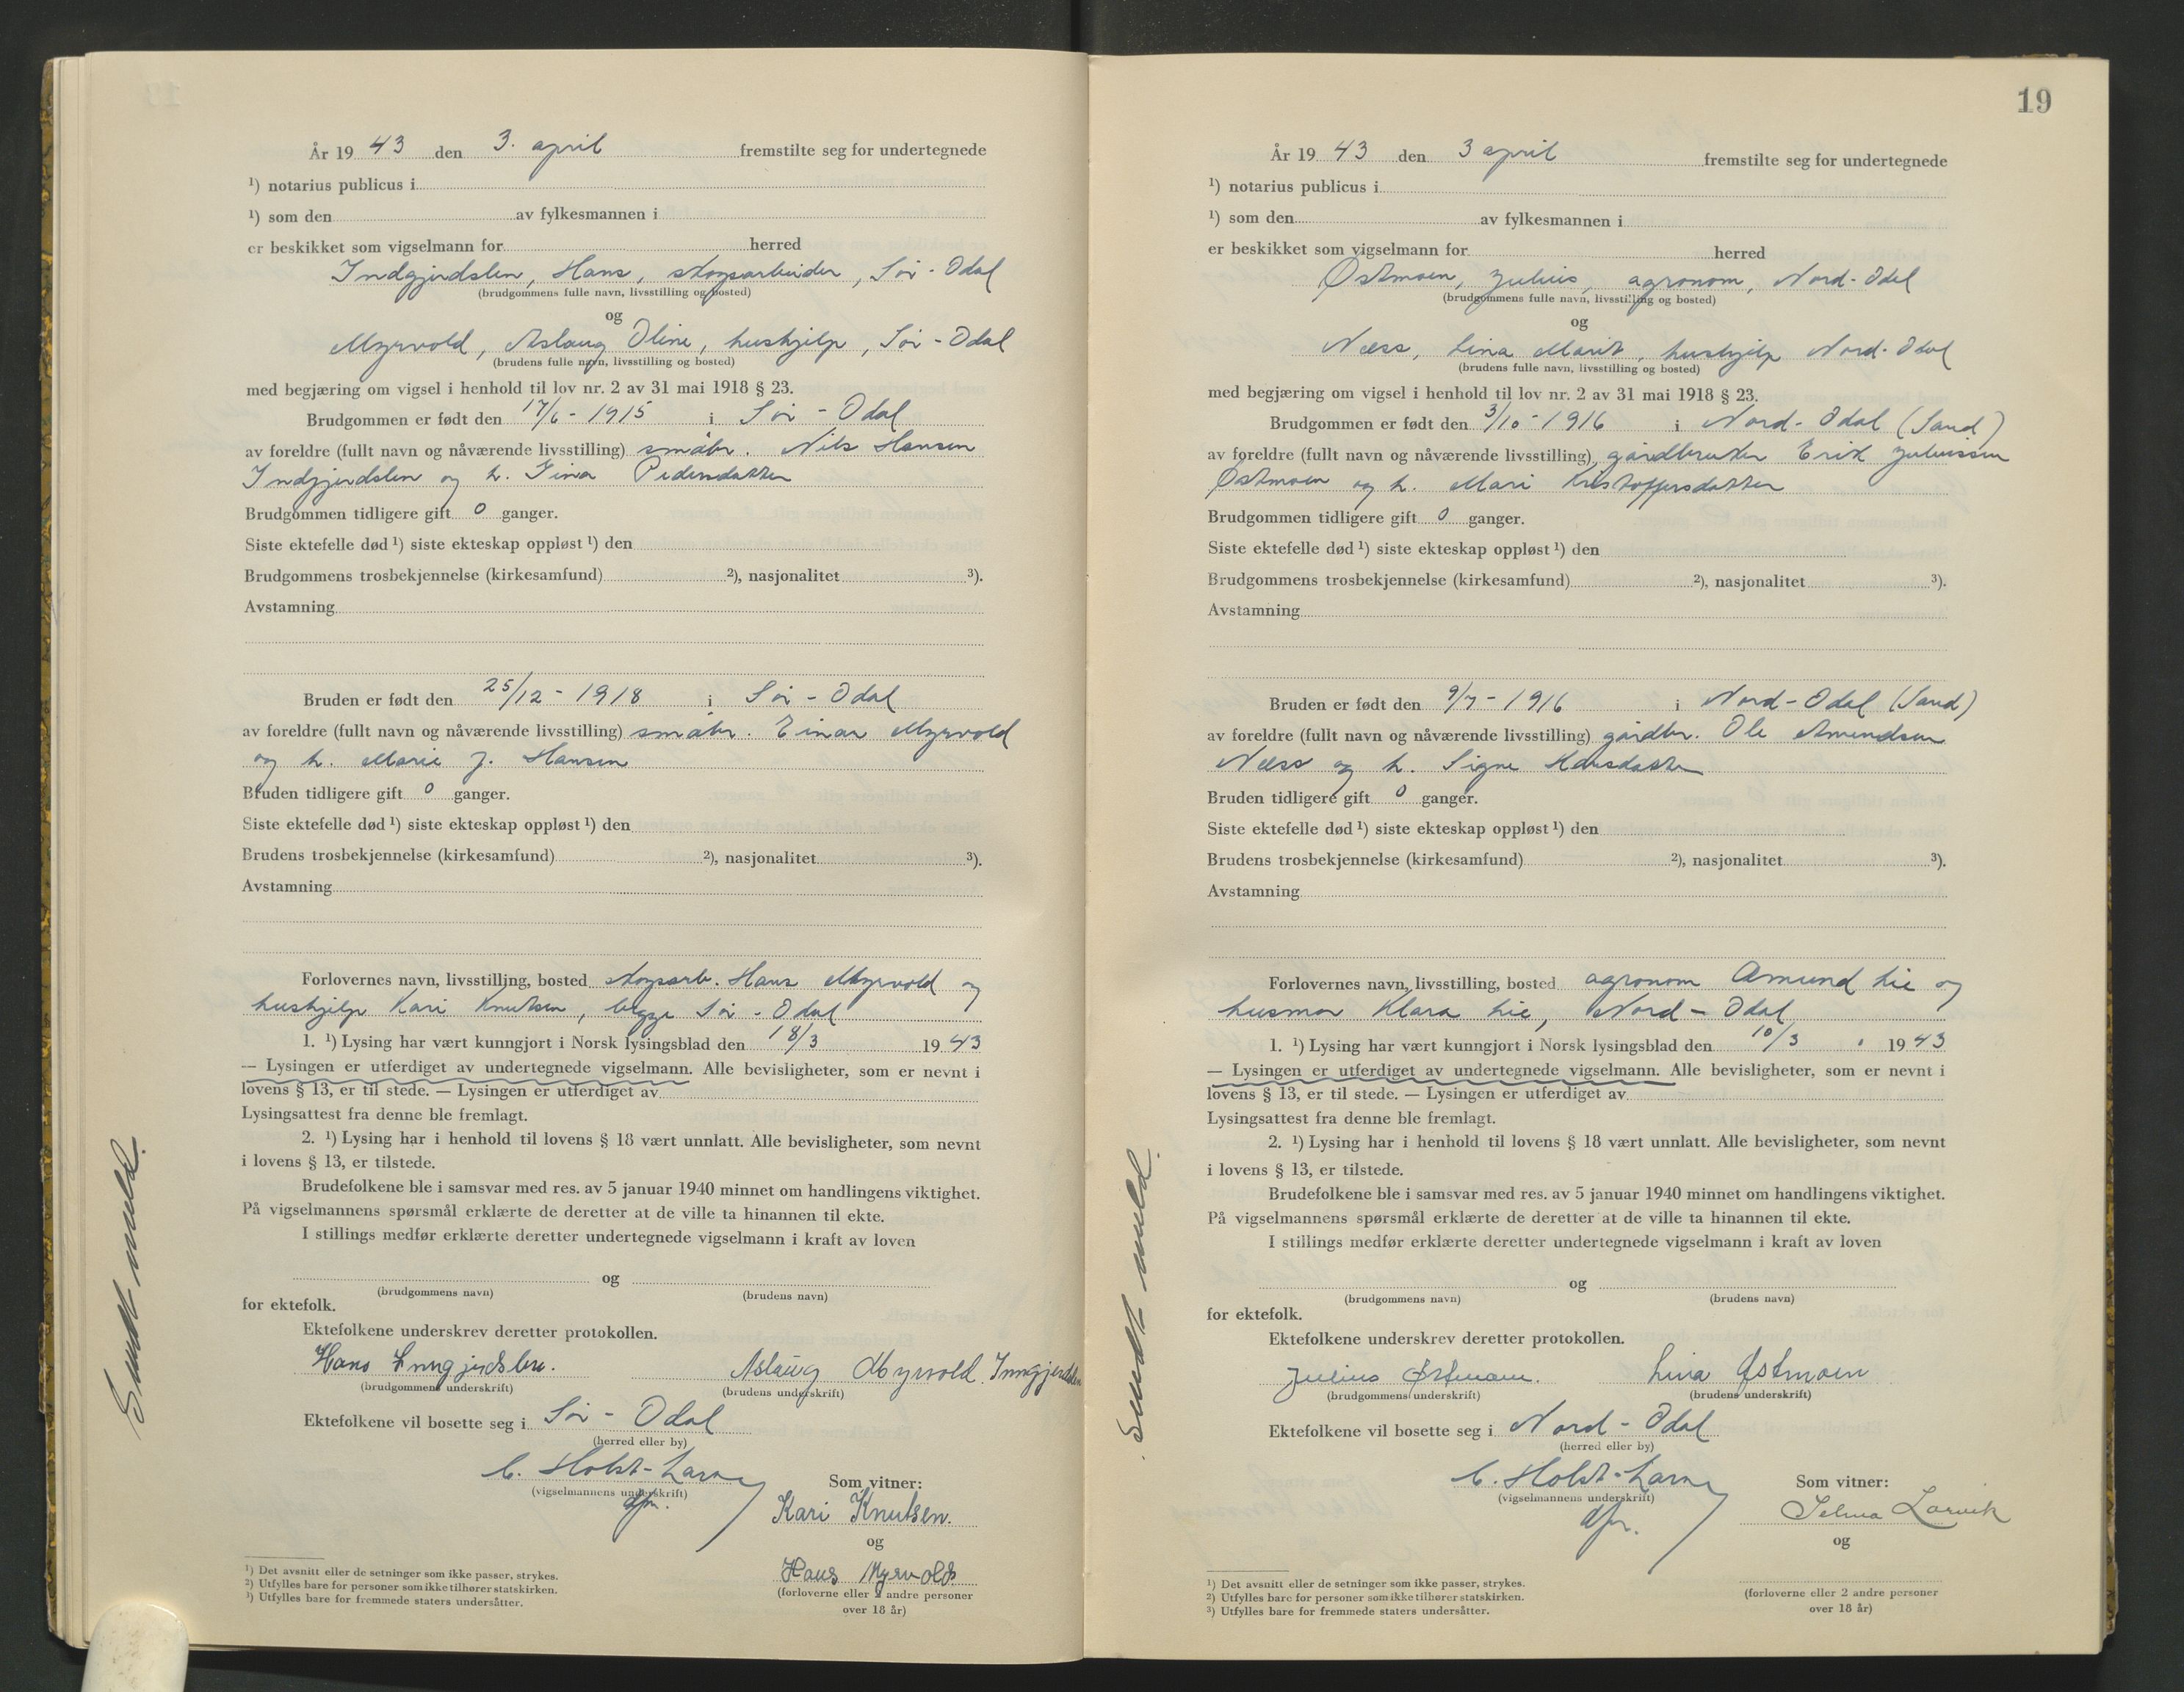 År 19 43 den 3. april fremstilte seg for undertegnede
¹) notarius publicus i
¹) som den av fylkesmannen i
er beskikket som vigselmann for herred
Indgjerdslen, Hans, skogsarbeider, Sør-Odal
(brudgommens fulle navn, livsstilling og bosted)
og
Myrvold, Aslaug Oline, hushjelp, Sør-Odal
(brudens fulle navn, livsstilling og bosted)
med begjæring om vigsel i henhold til lov nr. 2 av 31 mai 1918 § 23.
Brudgommen er født den 17/6-1915 i Sør-Odal
av foreldre (fullt navn og nåværende livsstilling) småbr. Nils Hansen
Indgjerdslen og h. Tina Pedersdatter
Brudgommen tidligere gift 0 ganger.
Siste ektefelle død ¹) siste ekteskap oppløst ¹) den
Brudgommens trosbekjennelse (kirkesamfund) ²), nasjonalitet ³).
Avstamning
Bruden er født den 25/12-1918 i Sør-Odal
av foreldre (fullt navn og nåværende livsstilling) småbr. Einar Myrvold
og h. Marie J. Hansen
Bruden tidligere gift 0 ganger.
Siste ektefelle død ¹) siste ekteskap oppløst ¹) den
Brudens trosbekjennelse (kirkesamfund) ²), nasjonalitet ³).
Avstamning
Forlovernes navn, livsstilling, bosted skogsarb. Hans Myrvold og
hushjelp Kari Knutsen, begge Sør-Odal
1. ¹) Lysing har vært kunngjort i Norsk lysingsblad den 18/3 19 43
— Lysingen er utferdiget av undertegnede vigselmann. Alle bevisligheter, som er nevnt i
lovens § 13, er til stede. — Lysingen er utferdiget av
Lysingsattest fra denne ble fremlagt.
2. ¹) Lysing har i henhold til lovens § 18 vært unnlatt. Alle bevisligheter, som nevnt
i lovens § 13, er tilstede.
Brudefolkene ble i samsvar med res. av 5 januar 1940 minnet om handlingens viktighet.
På vigselmannens spørsmål erklærte de deretter at de ville ta hinannen til ekte.
I stillings medfør erklærte deretter undertegnede vigselmann i kraft av loven
og
(brudgommens navn) (brudens navn)
for ektefolk.
Ektefolkene underskrev deretter protokollen.
Hans Inngjerdslen. Aslaug Myrvold Inngjerdslen
(brudgommens underskrift) (brudens underskrift)
Ektefolkene vil bosette seg i Sør-Odal
(herred eller by)
C. Holst-Larsen
(vigselmannens underskrift)
dfm.
Som vitner:
Kari Knutsen.
og
Hans Myrvold.
(forloverne eller 2 andre personer
over 18 år)
¹) Det avsnitt eller de setninger som ikke passer, strykes.
²) Utfylles bare for personer som ikke tilhører statskirken.
³) Utfylles bare for fremmede staters undersåtter.
Sendt meld.
19
År 19 43 den 3 april fremstilte seg for undertegnede
¹) notarius publicus i
¹) som den av fylkesmannen i
er beskikket som vigselmann for herred
Østmoen, Julius, agronom, Nord-Odal
(brudgommens fulle navn, livsstilling og bosted)
og
Næss, Lina Marit, hushjelp Nord-Odal
(brudens fulle navn, livsstilling og bosted)
med begjæring om vigsel i henhold til lov nr. 2 av 31 mai 1918 § 23.
Brudgommen er født den 3/10-1916 i Nord-Odal (Sand)
av foreldre (fullt navn og nåværende livsstilling) gårdbruker Erik Juliussen
Østmoen og h. Mari Kristoffersdatter
Brudgommen tidligere gift 0 ganger.
Siste ektefelle død ¹) siste ekteskap oppløst ¹) den
Brudgommens trosbekjennelse (kirkesamfund) ²), nasjonalitet ³).
Avstamning
Bruden er født den 9/7-1916 i Nord-Odal (Sand)
av foreldre (fullt navn og nåværende livsstilling) gårdbr. Ole Amundsen
Næss og h. Signe Hansdatter
Bruden tidligere gift 0 ganger.
Siste ektefelle død ¹) siste ekteskap oppløst ¹) den
Brudens trosbekjennelse (kirkesamfund) ²), nasjonalitet ³).
Avstamning
Forlovernes navn, livsstilling, bosted agronom Amund Lie og
husmor Klara Lie, Nord-Odal
1. ¹) Lysing har vært kunngjort i Norsk lysingsblad den 10/3 19 43
— Lysingen er utferdiget av undertegnede vigselmann. Alle bevisligheter, som er nevnt i
lovens § 13, er til stede. — Lysingen er utferdiget av
Lysingsattest fra denne ble fremlagt.
2. ¹) Lysing har i henhold til lovens § 18 vært unnlatt. Alle bevisligheter, som nevnt
i lovens § 13, er tilstede.
Brudefolkene ble i samsvar med res. av 5 januar 1940 minnet om handlingens viktighet.
På vigselmannens spørsmål erklærte de deretter at de ville ta hinannen til ekte.
I stillings medfør erklærte deretter undertegnede vigselmann i kraft av loven
og
(brudgommens navn) (brudens navn)
for ektefolk.
Ektefolkene underskrev deretter protokollen.
Julius Østmoen. Lina Østmoen
(brudgommens underskrift) (brudens underskrift)
Ektefolkene vil bosette seg i Nord-Odal
(herred eller by)
C. Holst-Larsen
(vigselmannens underskrift)
dfm.
Som vitner:
Selma Larvik
og
(forloverne eller 2 andre personer
over 18 år)
¹) Det avsnitt eller de setninger som ikke passer, strykes.
²) Utfylles bare for personer som ikke tilhører statskirken.
³) Utfylles bare for fremmede staters undersåtter.
Sendt meld.